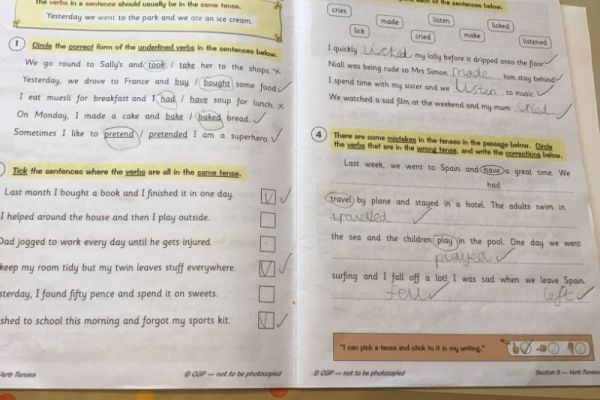 The verbs in a sentence should usually be in the same tense.
Yesterday we went to the park and we ate an ice cream.
1 Circle the correct form of the underlined verbs in the sentences below.
We go round to Sally's and took / take her to the shops. x
Yesterday, we drove to France and buy / bought some food. ✓
I eat muesli for breakfast and I had / have soup for lunch. x
On Monday, I made a cake and bake / baked bread. ✓
Sometimes I like to pretend / pretended I am a superhero. ✓
Tick the sentences where the verbs are all in the same tense.
Last month I bought a book and I finished it in one day. ✓ ✓
I helped around the house and then I play outside.
Dad jogged to work every day until he gets injured.
keep my room tidy but my twin leaves stuff everywhere. ✓ ✓
sterday, I found fifty pence and spend it on sweets.
shed to school this morning and forgot my sports kit. ✓ ✓
erb Tenses
© CGP — not to be photocopied
each of the sentences below.
cries made listen licked
lick cried make listened
I quickly licked my lolly before it dripped onto the floor. ✓
Niall was being rude so Mrs Simon made him stay behind. ✓
I spend time with my sister and we listen to music. ✓
We watched a sad film at the weekend and my mum cried ✓
4 There are some mistakes in the tenses in the passage below. Circle
the verbs that are in the wrong tense, and write the corrections below.
Last week, we went to Spain and have a great time. We
had
travel by plane and stayed in a hotel. The adults swim in
travelled ✓
the sea and the children play in the pool. One day we went
played ✓
surfing and I fall off a lot! I was sad when we leave Spain.
fell ✓ left ✓
"I can pick a tense and stick to it in my writing."
© CGP — not to be photocopied
Section 5 — Verb Tenses